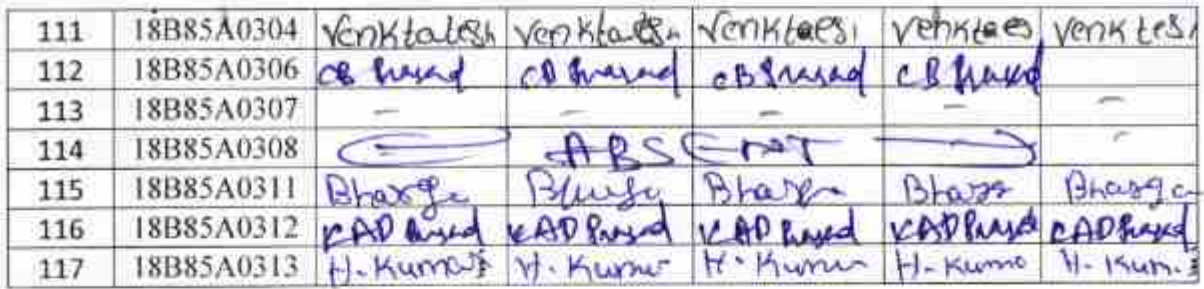 111 18B85A0304 Venktatesh Venktatesh Venktaesi Venktaes Venktesi
112 18B85A0306 CB Prasad CB Prasad CB Prasad CB Prasad
113 18B85A0307 - - - - -
114 18B85A0308 ABSENT -
115 18B85A0311 Bharga Bharga Bharga Bharga Bharga
116 18B85A0312 KAD Prasad KAD Prasad KAD Prasad KAD Prasad KAD Prasad
117 18B85A0313 H. Kumar H. Kumar H. Kumar H. Kuma H. Kum.